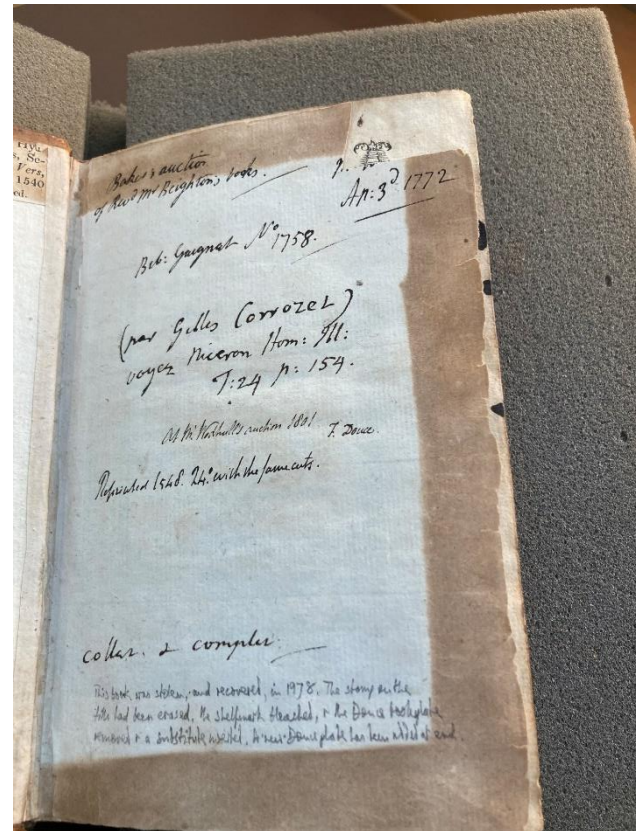 Hyv
s, Se-
Vers,
1540
ed.
Baker's auction
of Revd Mr Beighton's books.
Ap: 3d. 1772
Bib: Gaignat No 1758.
(par Gilles Corrozet)
voyez Niceron Hom: Ill:
T: 24 p: 154.
At Mr Wodhull's auction 1801 F. Douce.
Reprinted 1548. 24o. with the same cuts.
collat. & complet.
This book was stolen, and recovered, in 1978. The stamp on the
title had been erased, the shelfmark bleached, & the Douce bookplate
removed & a substitute inserted. A new Douce plate has been added at end.